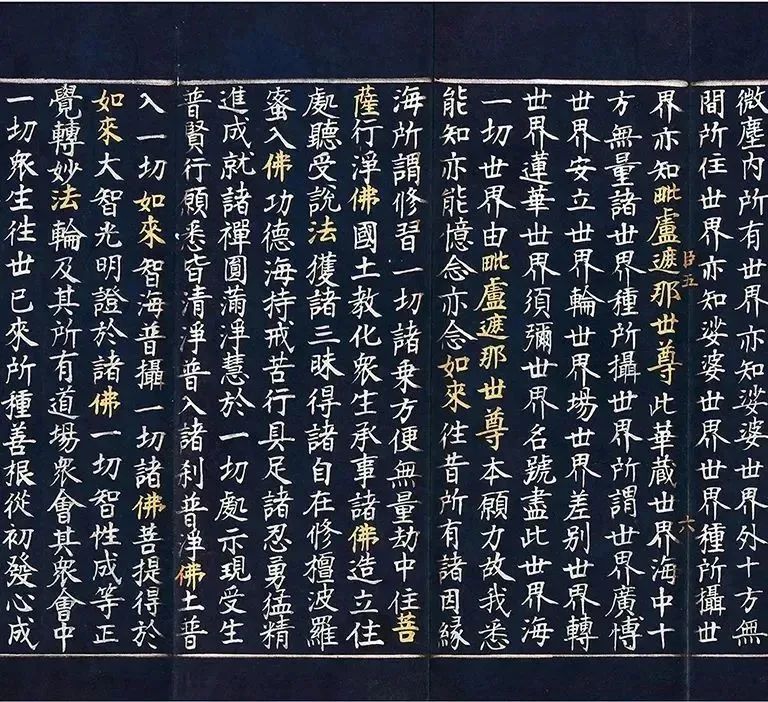 微塵內所有世界亦知娑婆世界外十方無
間所住世界亦知娑婆世界世界種所攝世
臣五 六
界亦知毗盧遮那世尊此華藏世界海中十
方無量諸世界種所攝世界所謂世界廣博
世界安立世界輪世界場世界差別世界轉
世界蓮華世界須彌世界名號盡此世界海
一切世界由毗盧遮那世尊本願力故我悉
能知亦能憶念亦念如來往昔所有諸因緣
海所謂修習一切諸乘方便無量劫中住菩
薩行淨佛國土教化衆生承事諸佛造立住
處聽受說法獲諸三昧得諸自在修檀波羅
蜜入佛功德海持戒苦行具足諸忍勇猛精
進成就諸禪圓滿淨慧於一切處示現受生
普賢行願悉皆清淨普入諸剎普淨佛土普
入一切如來智海普攝一切諸佛菩提得於
如來大智光明證於諸佛一切智性成等正
覺轉妙法輪及其所有道場衆會其衆會中
一切衆生往世已來所種善根從初發心成